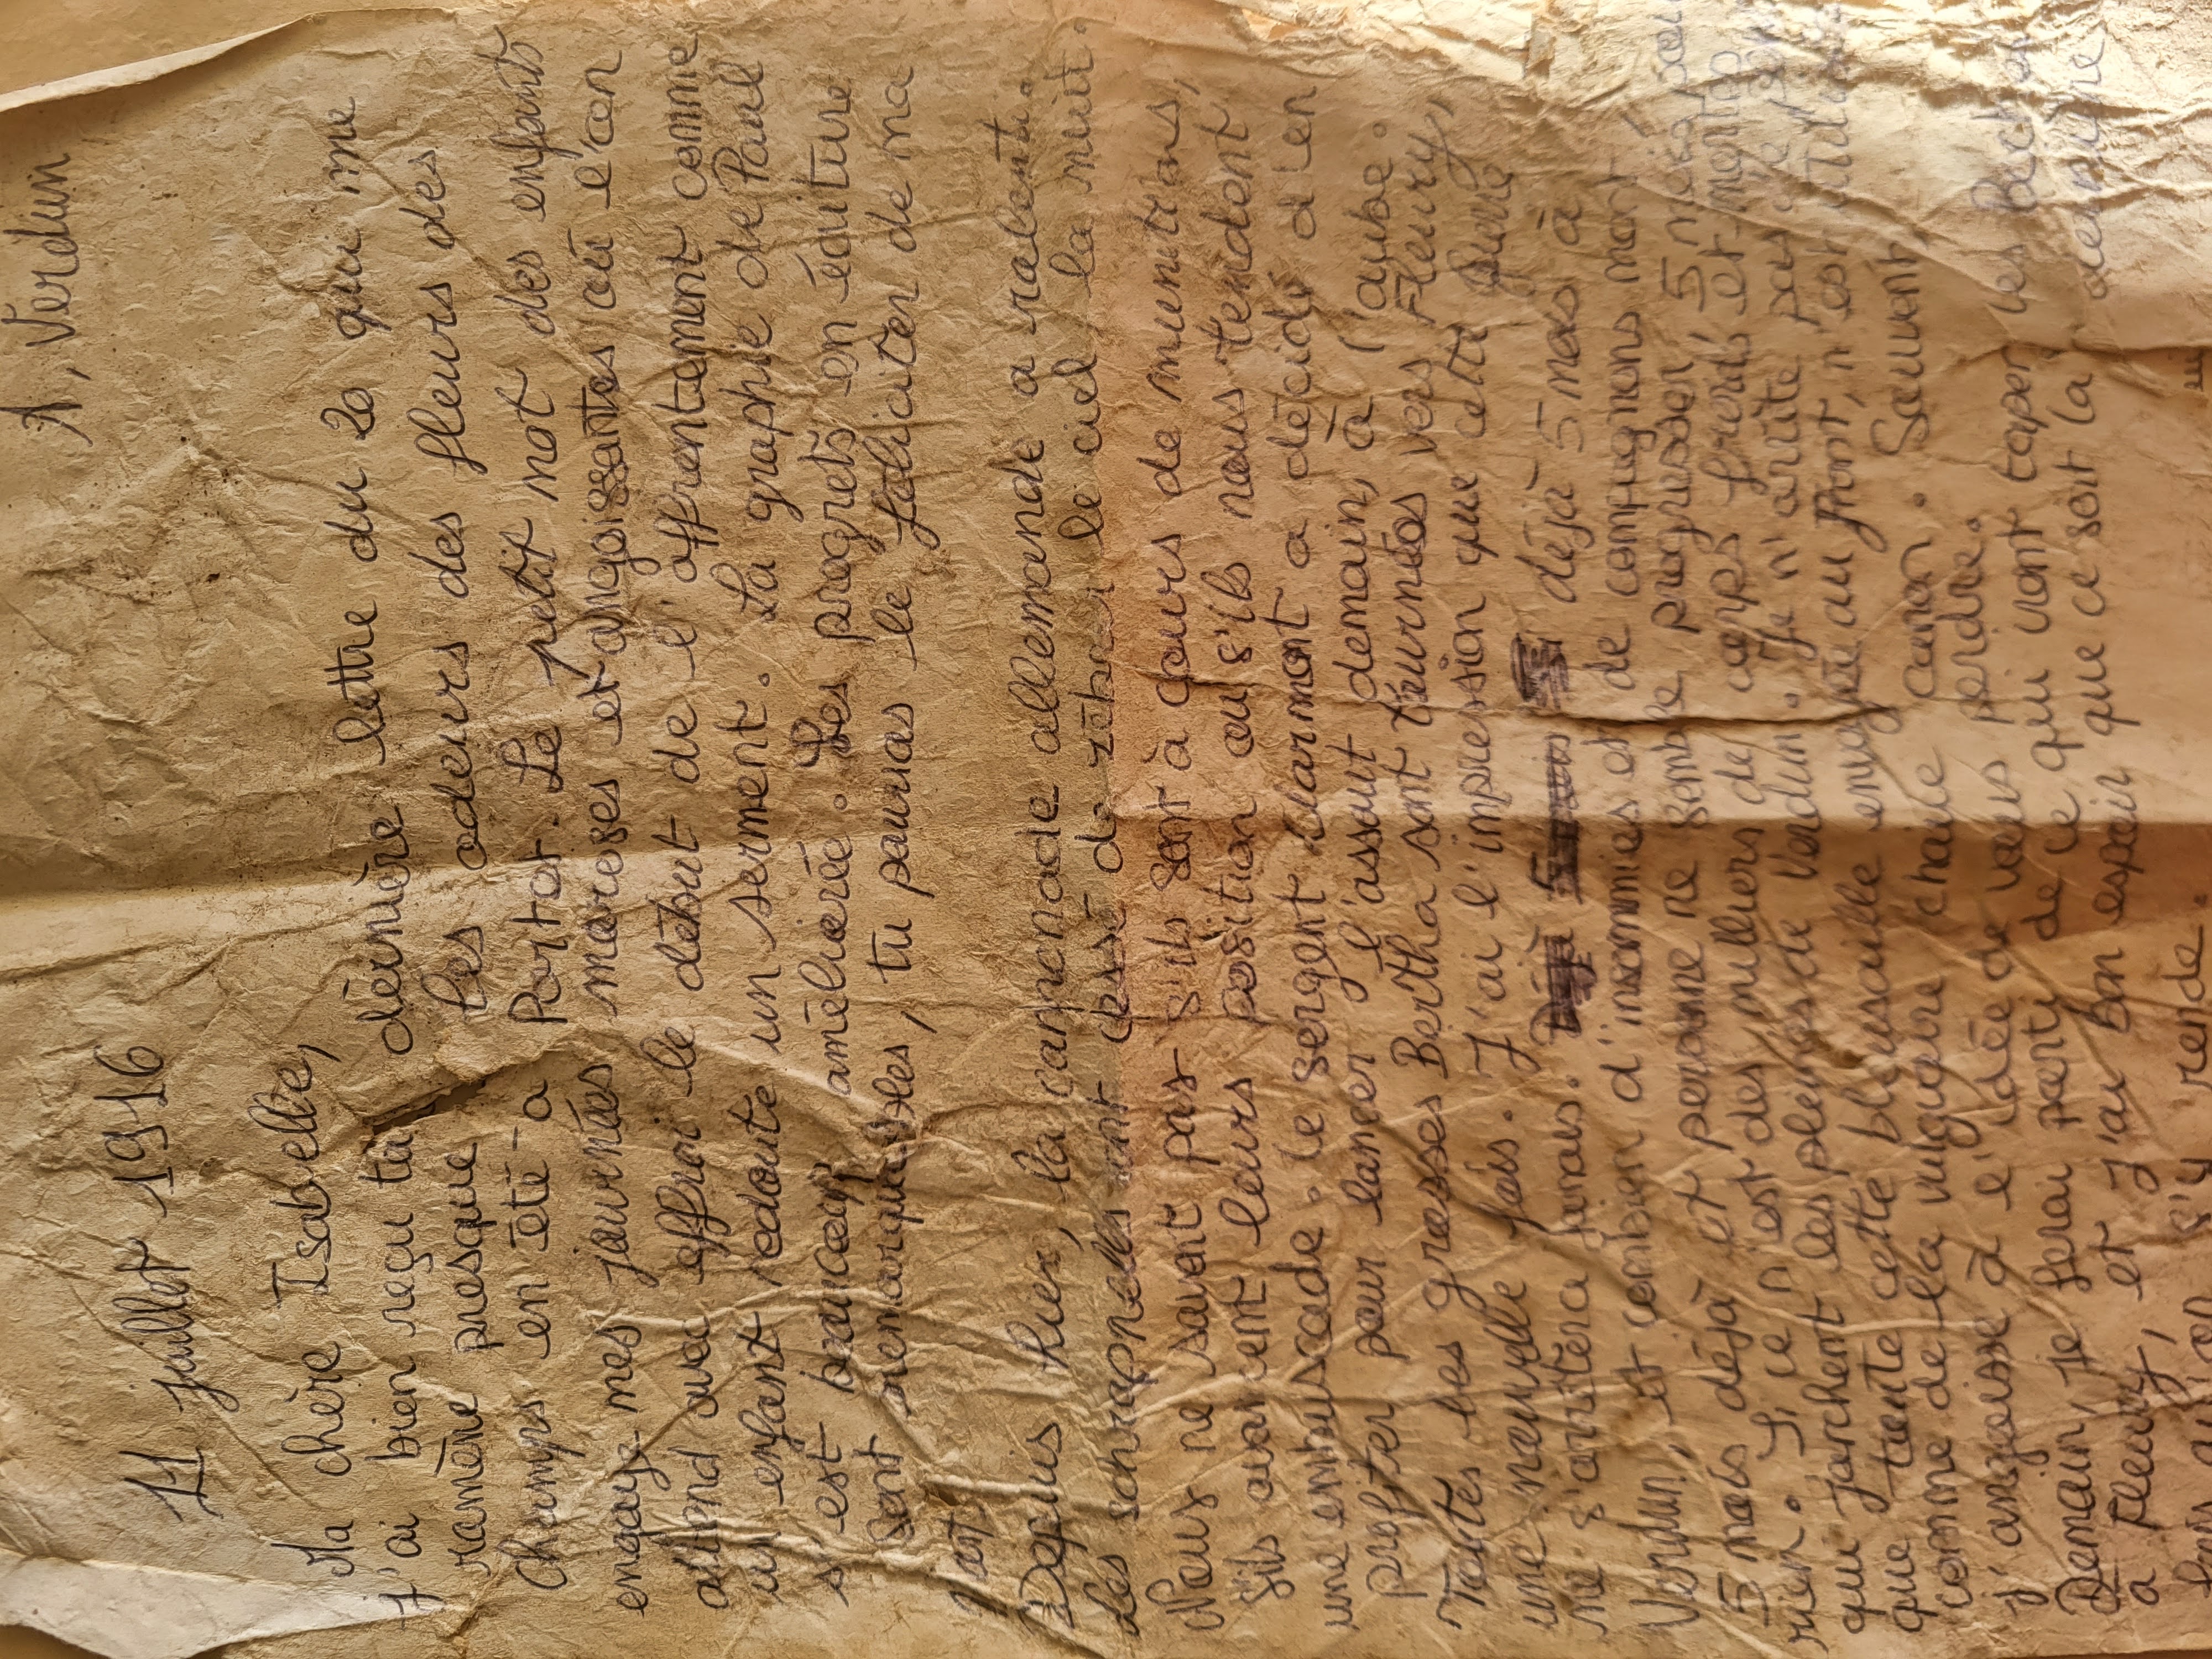 A, Verdun
11 juillet 1916
Ma chère Isabelle,
J'ai bien reçu ta dernière lettre du 20 qui me
ramène presque les odeurs des fleurs des
champs en été à Portor. Le petit mot des enfants
engaye mes journées moroses et angoissantes où l'on
attend avec effroi le début de l'affrontement comme
un enfant redoute un serment. La graphie de Paul
s'est beaucoup améliorée. Les progrets en écriture
sont remarquables, tu pourras le féliciter de ma
part
Depuis hier, la cannonade allemande a ralenti.
Les schrapnells ont cessé de zébrer le ciel la nuit.
Nous ne savont pas s'ils sont à cours de munitions,
s'ils avancent leurs position ou s'ils nous tendent
une embuscade. Le sergent Marmont a décidé d'en
profiter pour lancer l'assaut demain, à l'aube.
Toutes les grosses Bertha sont tournées vers Fleury,
une nouvelle fois. J'ai l'impression que cette guerre
ne s'arrêtera jamais. déjà 5 mois à
Verdun, et combien d'insomnies et de compagnons mort,
5 mois déjà et personne ne semble progresser 5 mois
rien. Si, ce n'est des milliers de corps froids et
qui jorchent les pleines de Verdun. Je n'arrête pas de
que toute cette bleusaille envoyée au front, n'est
comme de la vulguaire chaire canon. Souvent,
j'angoisse à l'idée de vous perdre.
Demain, je ferai parti de ce qui vont taper les
à Fleury, et j'ai bon espoir que ce soit la dernière
s'y rende.